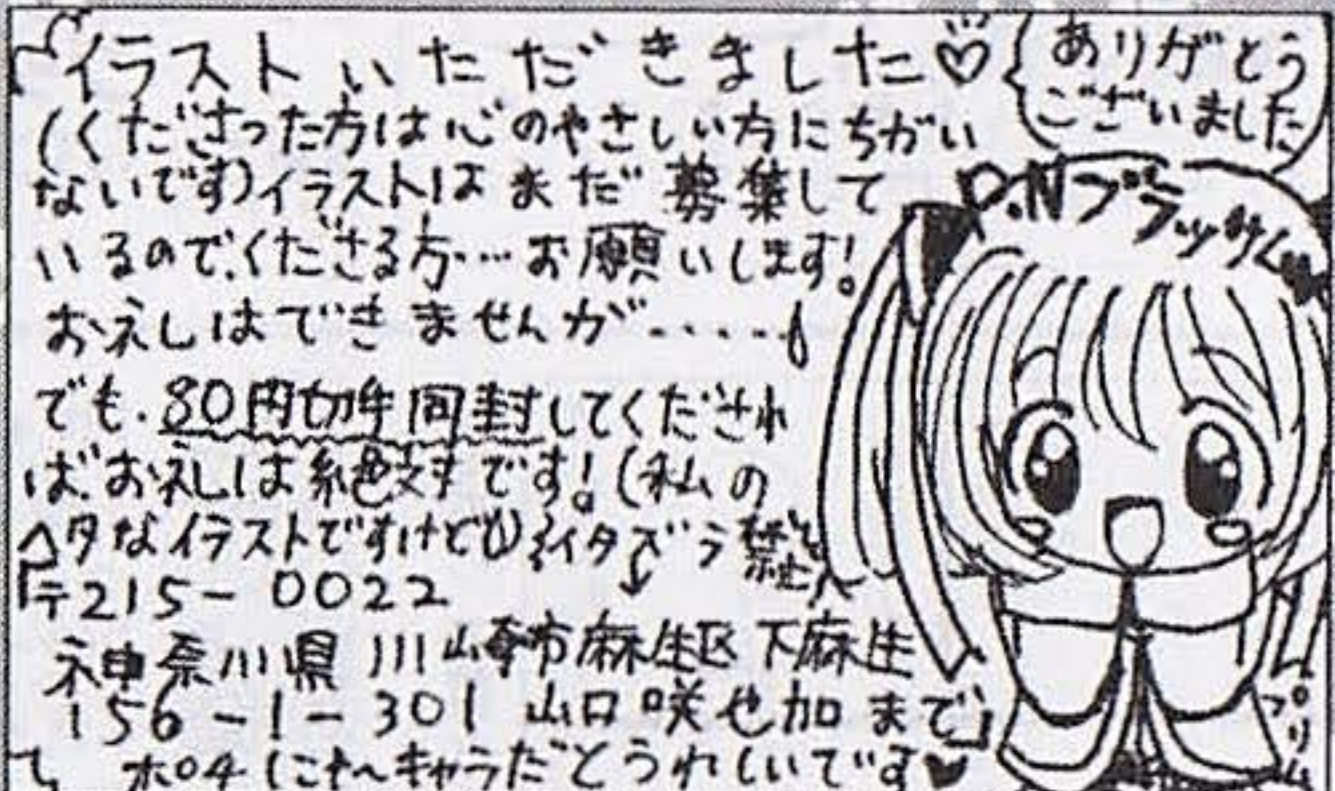 イラストいただきました♡
(くださった方は心のやさしい方にちがい
ないです)イラストはまだ募集して
いるので、くださる方…お願いします!
お礼はできませんが‥‥‥
でも、80円切手同封してくだされ
ば、お礼は絶対です!(私の
ヘタなイラストですけど)イタズラ禁止
「〒215-0022
神奈川県川崎市麻生区下麻生
156-1-301 山口咲也加まで」
キャラだとうれしいです♥
ありがとう
ございました
P.Nブラッサム
プリム